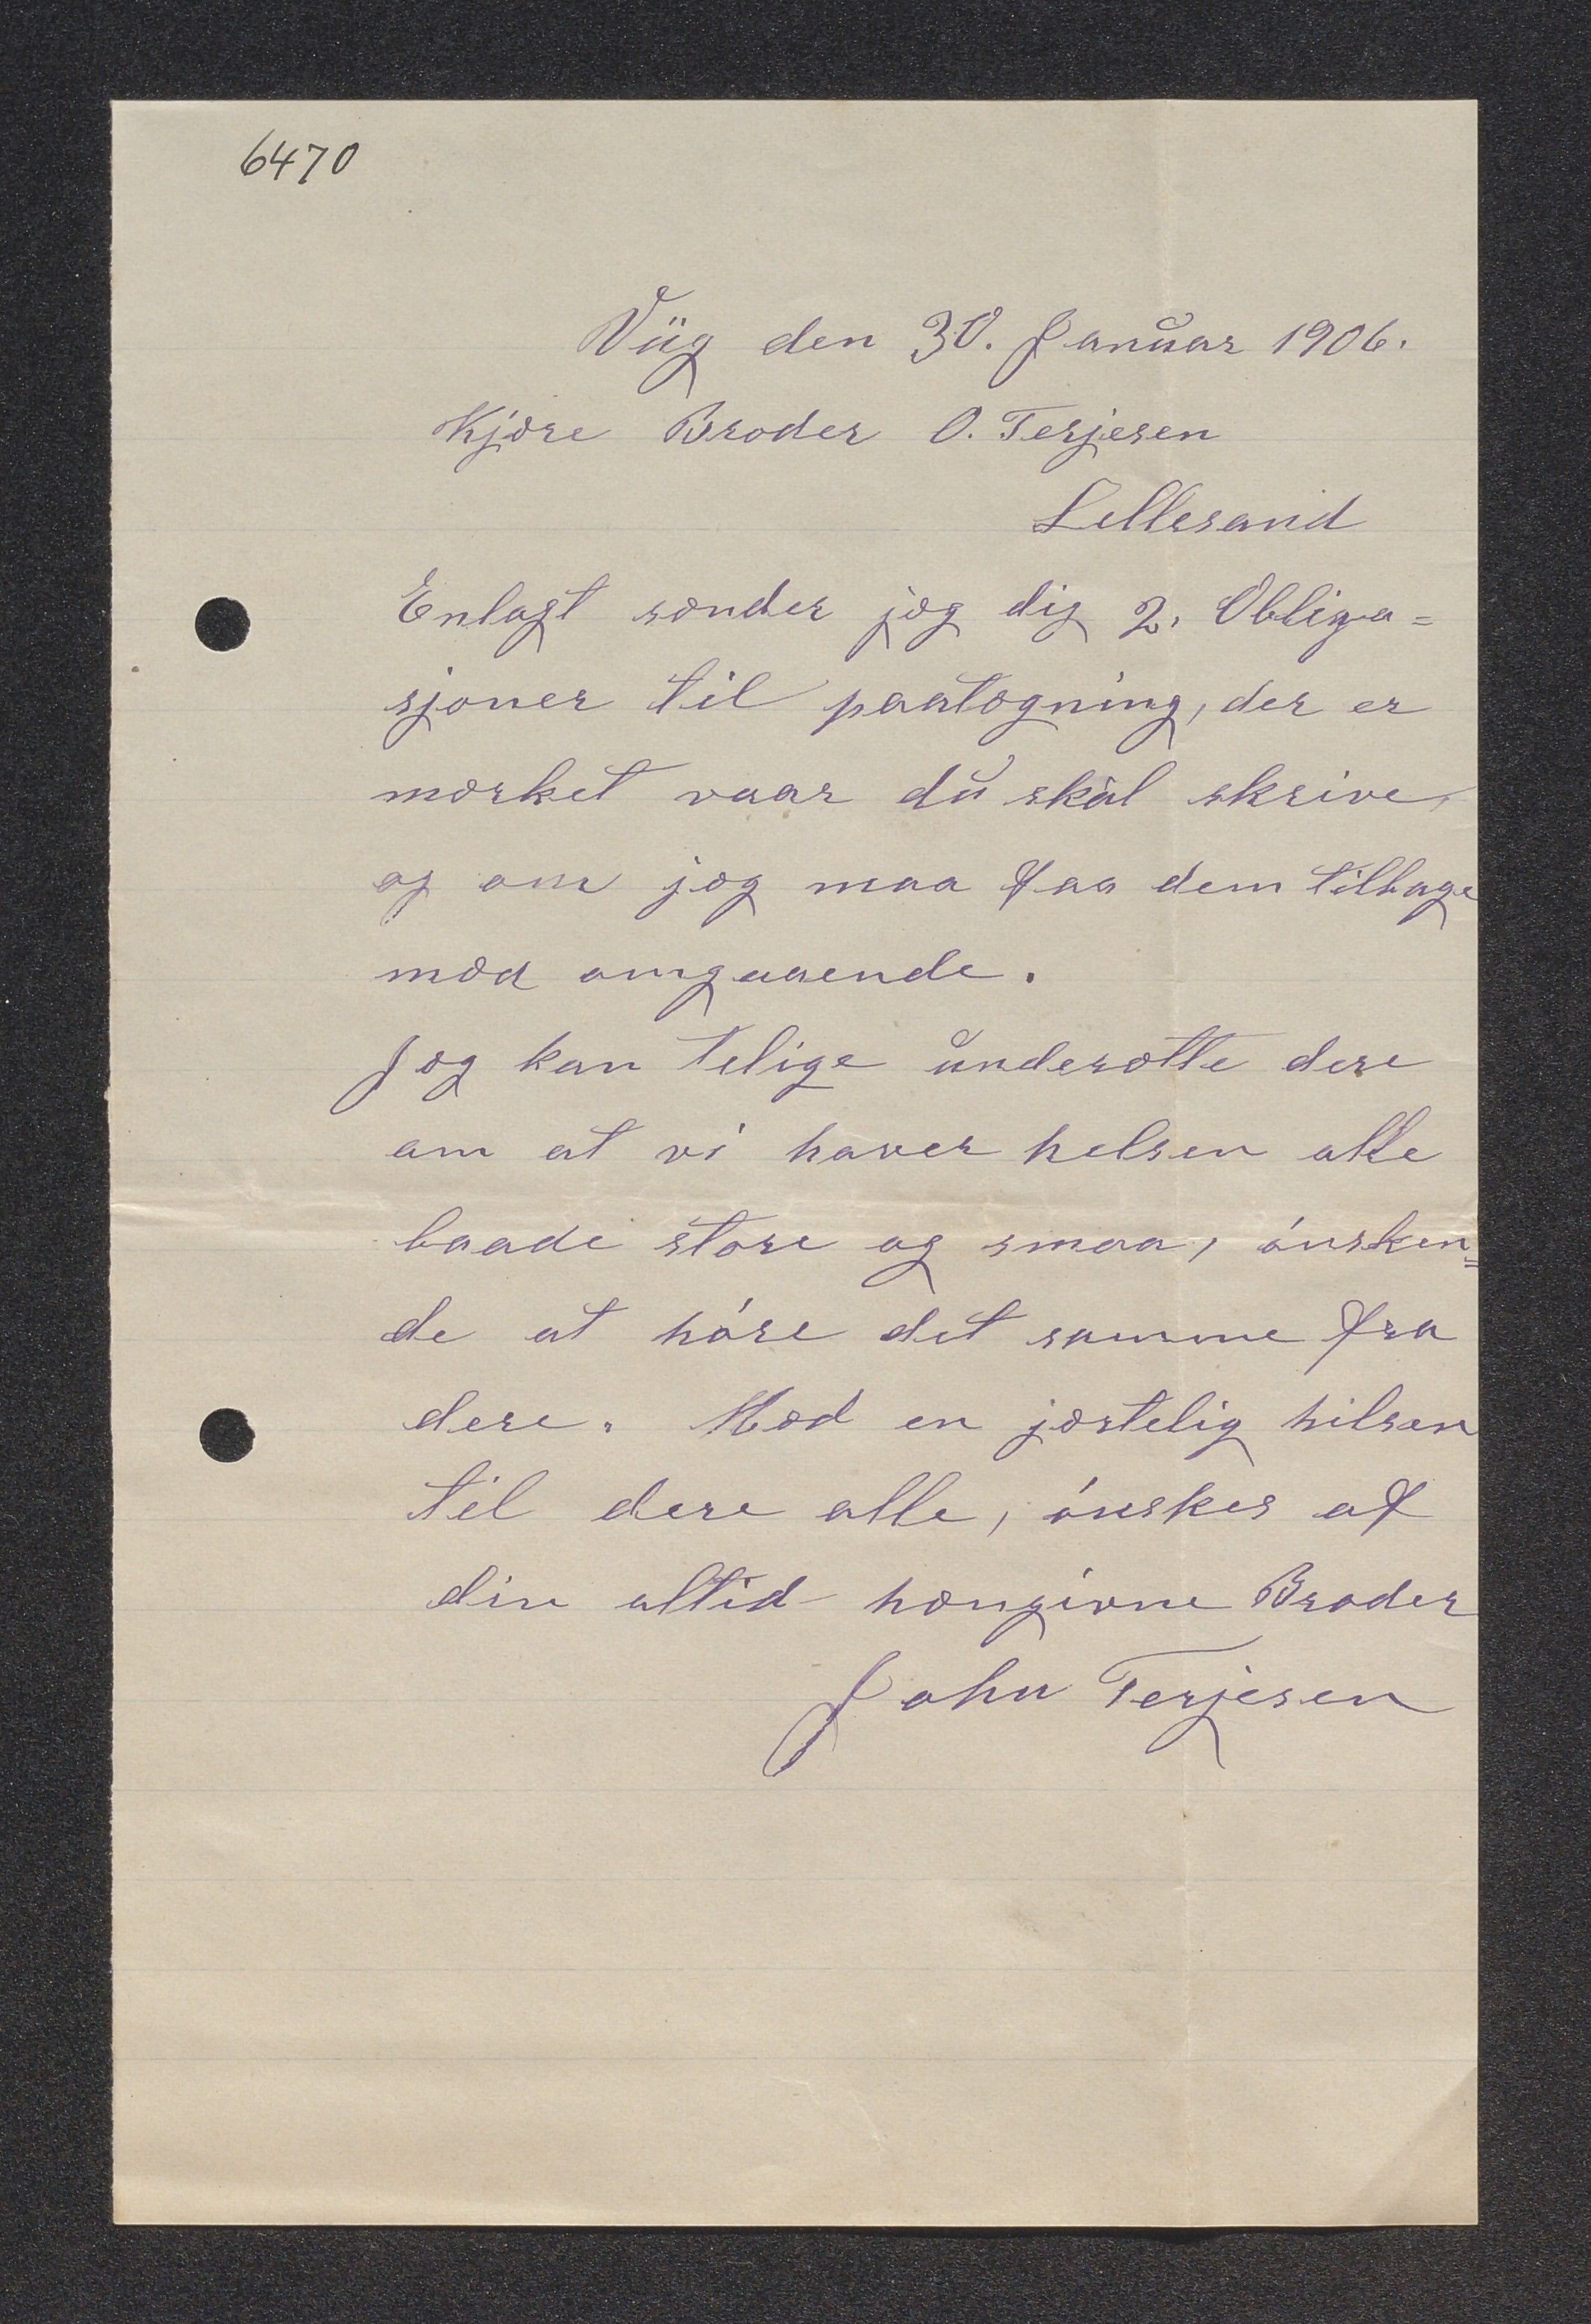 6470
Viig den 30. Januar 1906.
Kjære Broder O. Terjesen
Lellesand
Enlagt sænder jæg dig 2. Obliga=
sjoner til paatægning, der er
mærket vaar du skal skrive,
og om jæg maa faa dem tilbage
mæd omgaaende.
Jæg kan telige underætte dere
om at vi haver helsen alle
baade store og smaa, ónsken=
de at hóre det samme fra
dere. Mæd en jærtelig hilsen
til dere alle, ónskes af
din altid hængivne Broder
John Terjesen